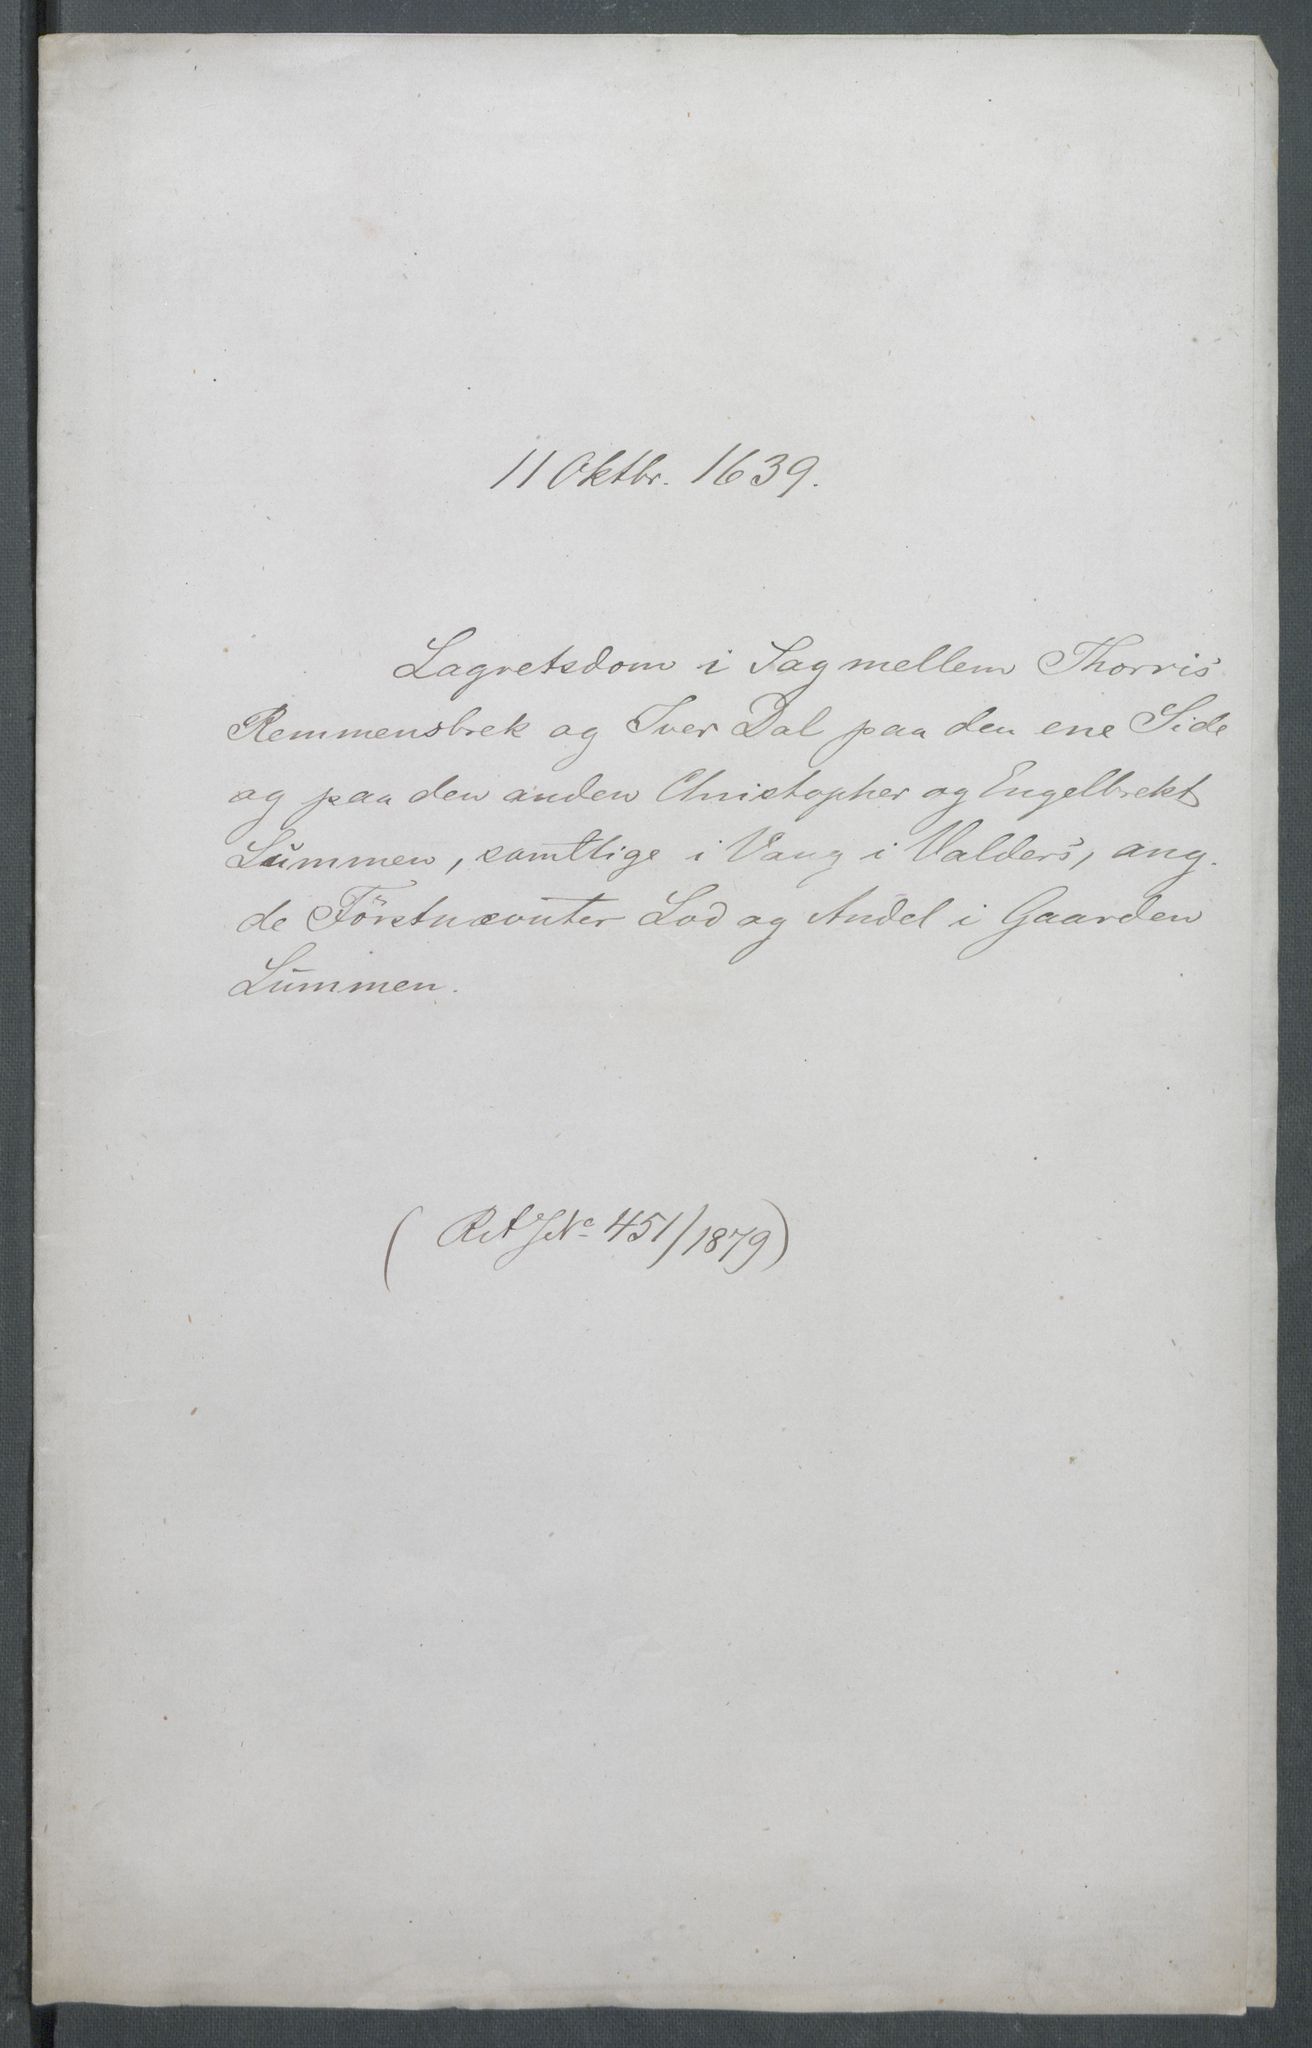 11 Oktbr. 1639.
Lagretsdom i Sag mellem Thorris
Remmensbrek og Iver Dal paa den ene Side
og paa den anden Christopher og Engelbrekt
Lummen, samtlige i Vang i Valders, ang.
de Förstnævnter Lod og Andel i Gaarden
Lummen.
( R.A. J.No 451/1879)